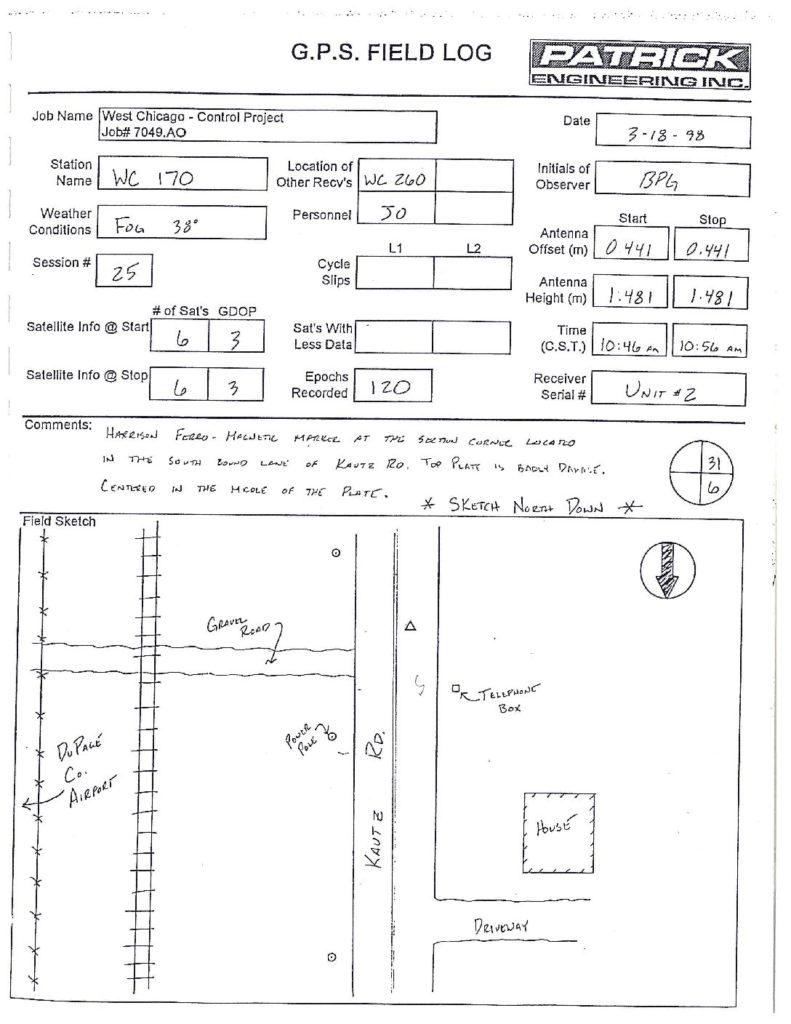 G.P.S. FIELD LOG
PATRICK
ENGINEERING INC.
Job Name West Chicago - Control Project
Job# 7049.AO
Date 3-18-98
Station Name WC 170
Location of Other Recv's WC 260
Initials of Observer BPG
Weather Conditions FOG 38°
Personnel JO
Start Stop
Antenna Offset (m) 0.441 0.441
Session # 25
L1 L2
Cycle Slips
Antenna Height (m) 1.481 1.481
# of Sat's GDOP
Satellite Info @ Start 6 3
Sat's With Less Data
Time (C.S.T.) 10:46 AM 10:56 AM
Satellite Info @ Stop 6 3
Epochs Recorded 120
Receiver Serial # UNIT #2
Comments: HARRISON FERRO-MAGNETIC MARKER AT THE SECTION CORNER LOCATED
IN THE SOUTH BOUND LANE OF KAUTZ RD. TOP PLATE IS BADLY DAMAGE.
CENTERED IN THE MIDDLE OF THE PLATE.
31
6
* SKETCH NORTH DOWN *
Field Sketch
GRAVEL
ROAD
TELEPHONE
BOX
POWER
POLE
DUPAGE
CO.
AIRPORT
KAUTZ RD.
HOUSE
DRIVEWAY